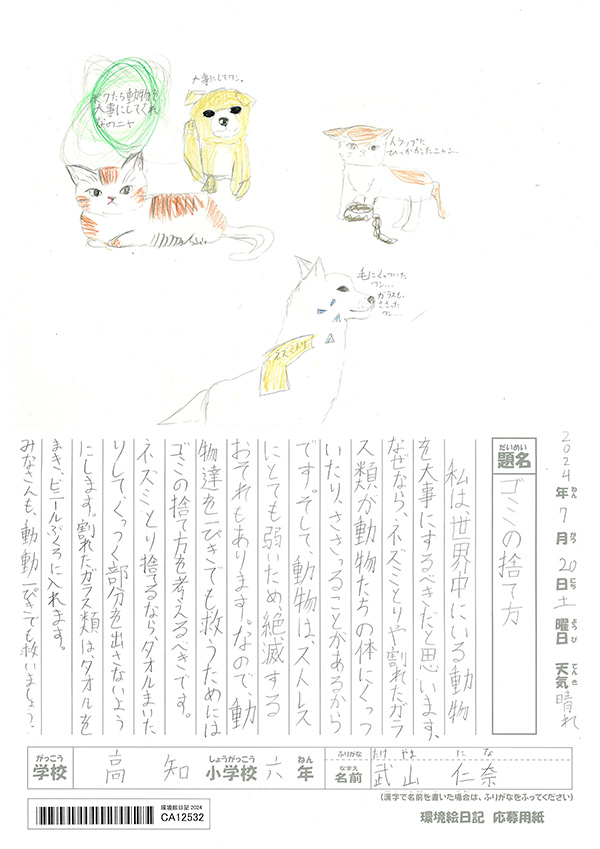 ボクたち動物を
大事にしてくれ
なのニャ
大事にしてワン。
トラップに
ひっかかったニャン…
毛にくっついた
ワン…
ガラスも、
ささった
ワン…
ネズミトリ
2024年7月20日土曜日 天気晴れ
ねん がつ にち ようび てんき
だいめい
題名
ゴミの捨て方
私は、世界中にいる動物
を大事にするべきだと思います。
なぜなら、ネズミとりや割れたガラ
ス類が動物たちの体にくっつ
いたり、ささっることがあるから
です。そして、動物は、ストレス
にとても弱いため、絶滅する
おそれもあります。なので、動
物達を一ぴきでも救うためには
ゴミの捨て方を考えるべきです。
ネズミとり捨てるなら、タオルまいた
りして、くっつく部分を出さないよう
にします。割れたガラス類は、タオルを
まき、ビニールぶくろに入れます。
みなさんも、動動一ぴきでも救いましょう。
がっこう
学校
高知
しょうがっこう
小学校
六
ねん
年
ふりがな
たけ やま に な
なまえ
名前
武山 仁奈
(漢字で名前を書いた場合は、ふりがなをふってください)
環境絵日記 2024
CA12532
環境絵日記 応募用紙